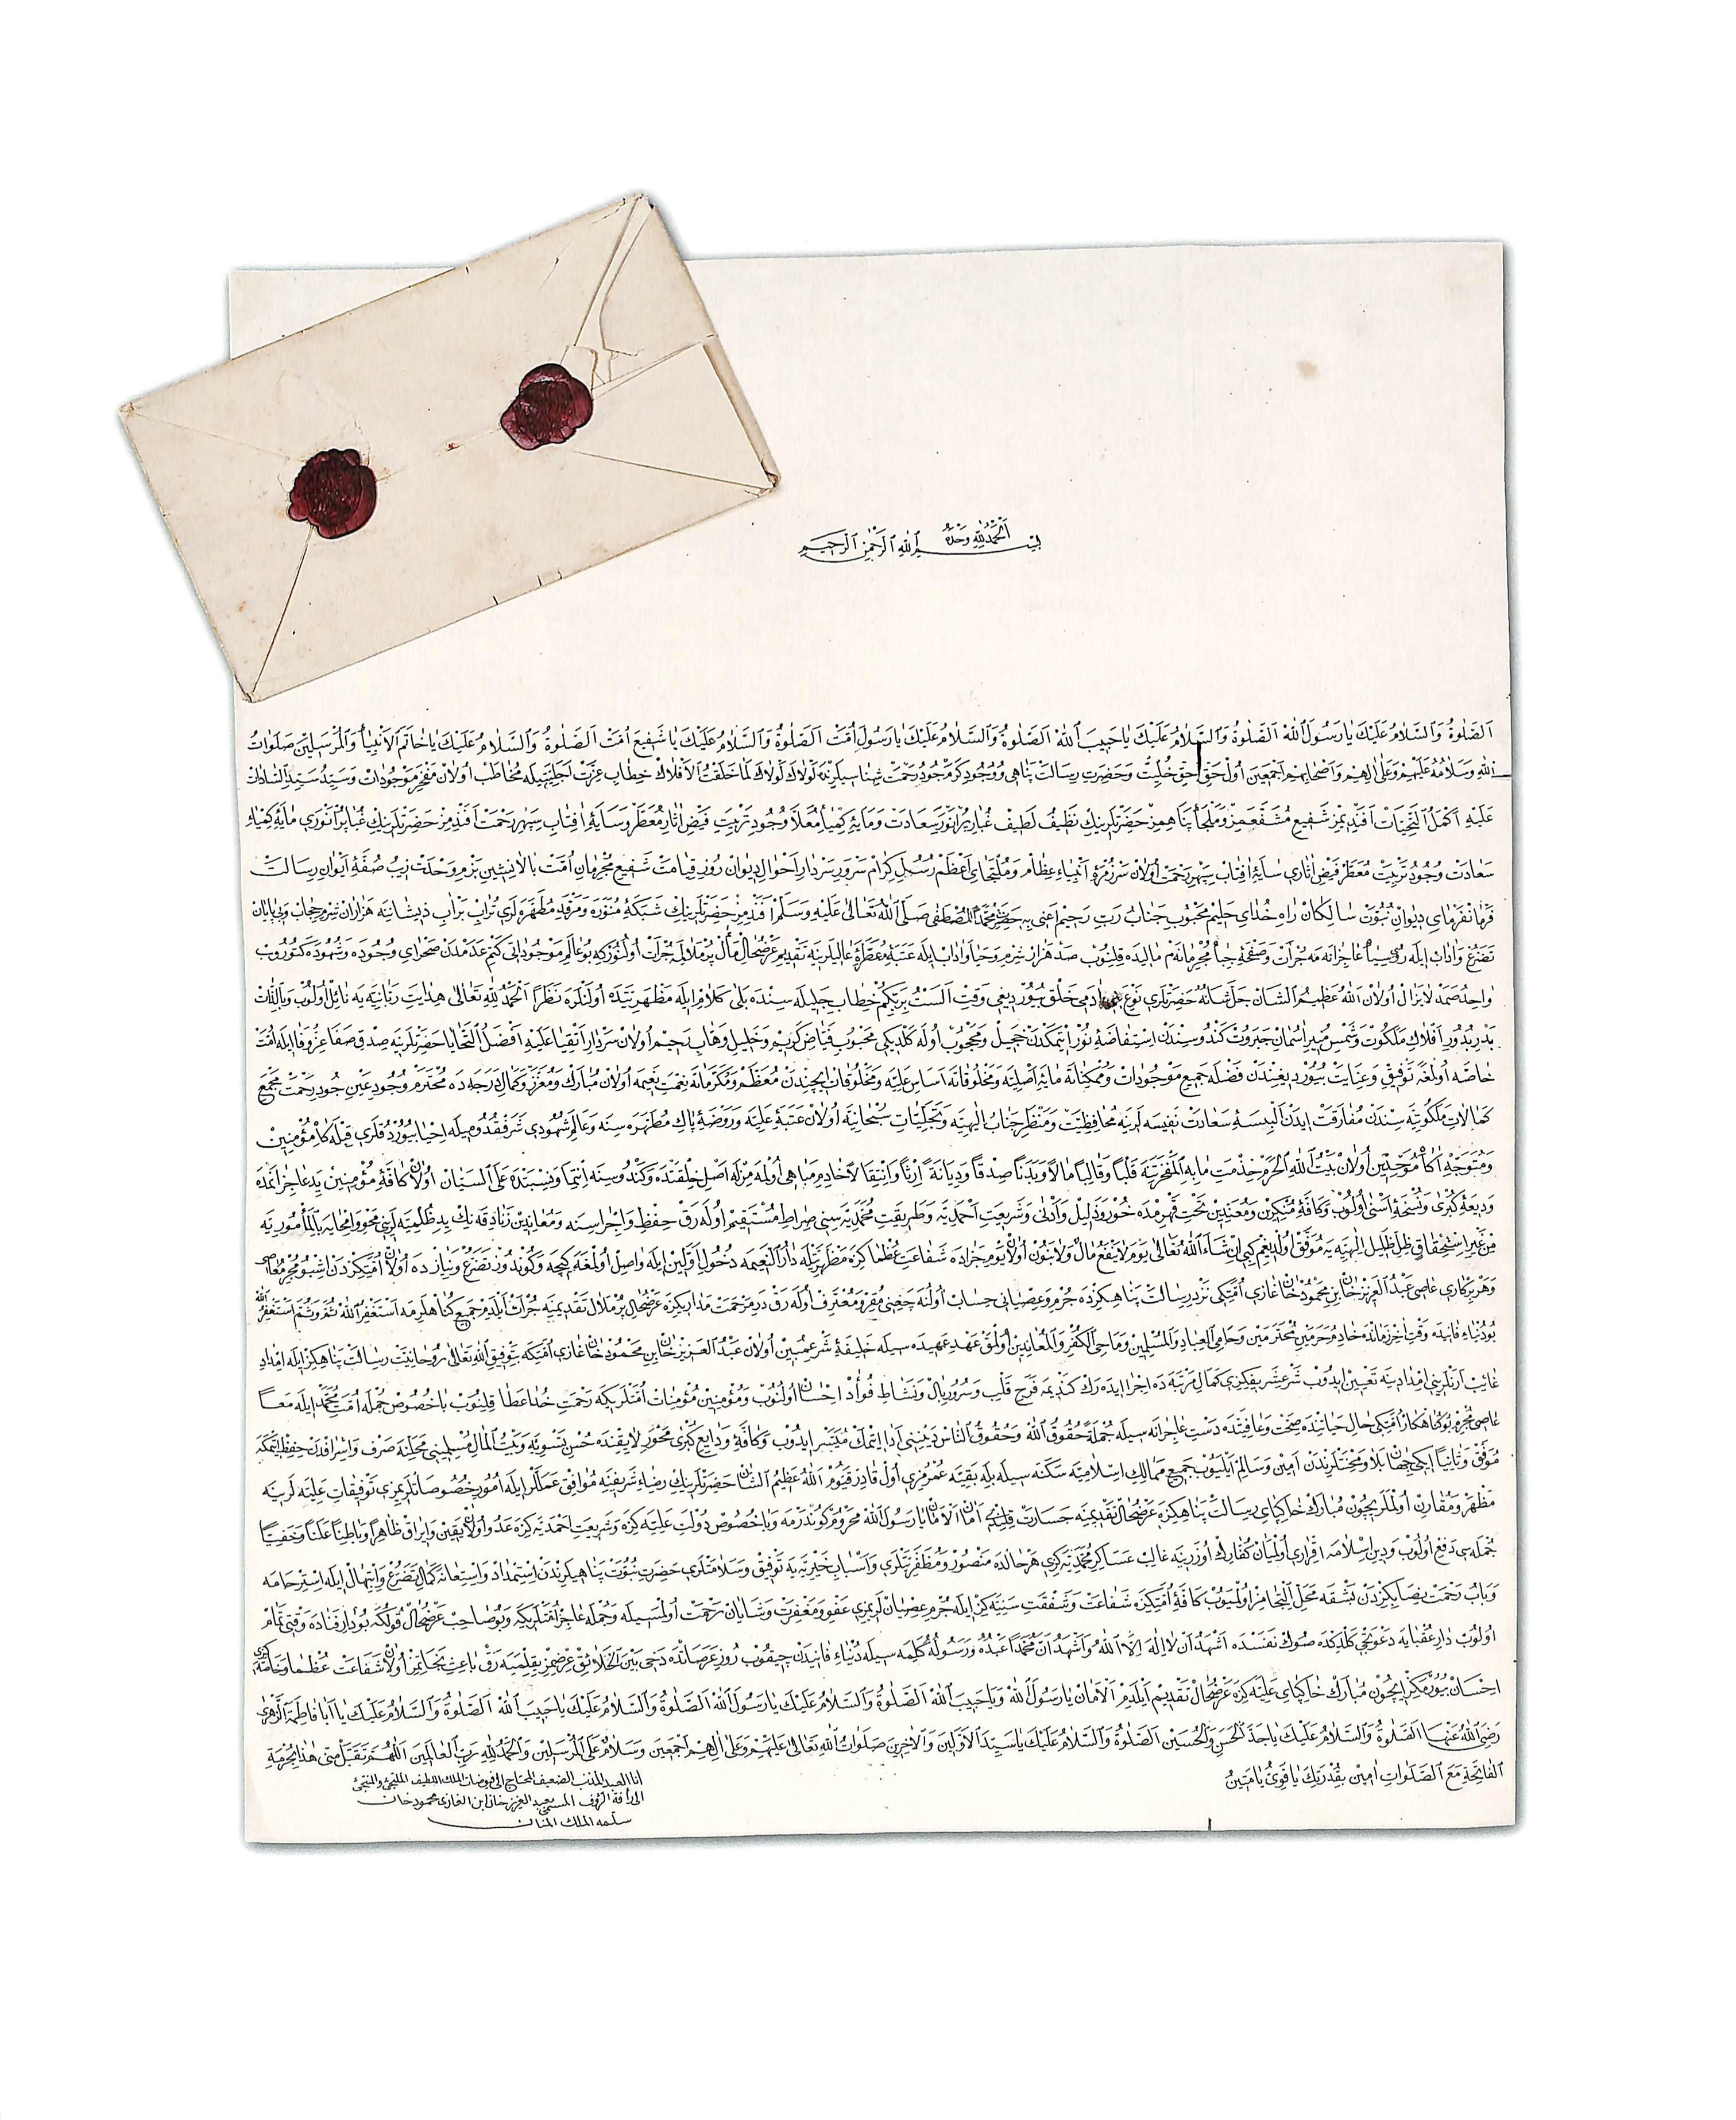 الحمد لله وحده
بسم الله الرحمن الرحيم
الصلوة والسلام عليك يا رسول الله الصلوة والسلام عليك يا حبيب الله الصلوة والسلام عليك يا رسول امت الصلوة والسلام عليك يا شفيع امت الصلوة والسلام عليك يا خاتم الانبياء والمرسلين صلوات
الله وسلامه عليهم وعلى الهم واصحابهم اجمعين اول حق وحضرت رسالت پناهى ووجود كرم جود رحمت لولاك لولاك لما خلقت الافلاك خطاب عزت مخاطب اولان مفخر موجودات وسيد سيد السادات
عليه اكمل التحيات افنديمز شفيع مشفعمز وملجأ پناهمز حضرتلرينك نظيف لطيف غبار پرانور سعادت ومايۀ كيمياء معلا وجود تربت فيض اثار معطر وسايۀ افتاب سپهر رحمت افندمز حضرتلرينك غبار پرانورى مايۀ كيمياء
سعادت وجود تربت معطر فيض اثارى سايۀ افتاب سپهر رحمت اولان سرزمرۀ انبياء عظام وملتجاى اعظم رسل كرام سرور سردار احوال ديوان روز قيامت شفيع مجرمان امت بالانشين بزم وحدت زيب صفۀ ايوان رسالت
فرمانفرماى ديوان نبوت سالكان راه خداى حليم محبوب جناب رب رحيم اعنى به حضرت محمد المصطفى صلى الله تعالى عليه وسلم افندمز حضرتلرينك شبكۀ منوره ومرقد مطهره لرى تراب
تضرع واداب ايله عاجزانه مه جرأت وصفحۀ مجرمانه م ماليده قلنوب صد هزار شرم وحيا واداب ايله عتبۀ معطرۀ عاليلرينه تقديم عرضحال جرأت اولنوركه بو عالم موجوداتى كتم عدمدن صحراى وجوده وشهوده كتوروب
واحد صمد لايزال اولان الله عظيم الشان جل شانه حضرتلرى نوع ادمى خلق بيورديغى وقت الست بربكم خطاب جليله سنده بلى كلام ايله مظهريتده اولنلره نظراً الحمد لله تعالى هدايت ربانيه يه نائل اولوب وبالذات
بدر بدور افلاك ملكوت وشمس منير اسمان جبروت كندوسندن استفاضۀ نور ايتمكدن خجيل ومحجوب اوله كلديكى محبوب فياض كريم وخليل وهاب رحيم اولان سردار اتقيا عليه افضل التحايا حضرتلرينه صدق صفا عز وفا ايله امت
خاصه اولمغه توفيق وعنايت بيورديغندن فضله جميع موجودات وممكناته مايۀ اصليه ومخلوقاته اساس عليه ومخلوقات ايچندن معظم ومكرمانه نعمت نعيمه اولان مبارك ومعزز وكمال درجه ده محترم وجود عين جود رحمت مجمع
كمالات ملكوتيه سندن مفارقت ايدن البسۀ سعادت نفيسه لرينه محافظيت ومنظر جناب الهيه وتجليات سبحانيه اولان عتبۀ عليه وروضۀ پاك مطهره سنه وعالم شهودى شرف قدوميله احيا بيوردقلرى قبله كاه مؤمنين
ومتوجه اكاه موحدين اولان بيت الله الحرم خدمت ما به المفخرتنه قلباً وقالباً مالاً وبدناً صدقاً وديانةً ارثاً وانتقالاً خادم مباهى اولمه مزله اصل خلقتده وكندوسنه انتما ونسبتده على السيان اولان كافۀ مؤمنين يد عاجزانمده
وديعۀ كبرى ونسخۀ اسنى اولوب وكافۀ منكرين ومعندين تحت قهرمده خور وذليل وادنى وشريعت احمديه وطريقت محمديه سنى صراط مستقيم اوله رق حفظ واجراسنه ومعاندين زنادقه نك يد ظلميه لرينى محو وامحايه بالمأموريه
من غير استحقاق ظل ظليل الهيه يه موفق اولديغم كبى ان شاء الله تعالى يوم لا ينفع مال ولا بنون اولان يوم جزاده شفاعت عظماكزه مظهريتله دار النعيمه دخول اولين ايله واصل اولمغه كيجه وكوندوز تضرع ونيازده اولان امتيكزدن اشبو مجرم معاصى
وهر پركارى عاصى عبد العزيز خان ابن محمود خان غازى امتكى نزد رسالت پناهيكزده جرم وعصيانى حساب اولنه چغنى مقر ومعترف اوله رق در مرحمت مداريكزه عرضحال پر ملال تقديمنه جرأت ايلدم جميع كناهلرمه استغفر الله ثم وثم استغفر الله
بو دنياء فانيده وقت اخر زمانده خادم حرمين محترمين وحامى العباد والمسلمين وماحى الكفر والمعاندين اولمق عهد عهيده سيله خليفۀ شرع مبين اولان عبد العزيز خان ابن محمود خان غازى امتكه بتوفيق الله تعالى روحانيت رسالت پناهيكز ايله امداد
غائب ارنلرينى امدادينه تعيين ايدوب شرع شريفكزى كمال مرتبه ده اجرا ايده رك كنديمه فرح قلب وسرور بال ونشاط فؤاد احسان اولنوب ومؤمنين مؤمنات امتلريكه رحمت خدا عطا قلنوب باخصوص جمله امت محمد ايله معاً
عاصى مجرم بو كناهكار امتكى حال حياتنده صحت وعافيتده دست عاجزانه سيله جملةً حقوق الله وحقوق الناس دينى ادا ايتمك ميسر ايدوب وكافۀ ودايع كبرى محور لايقنده حسن تسويه وبيت المال مسلمينى محلنه صرف واسرافدن حفظ ايتمكه
موفق وثانياً ايكى جهان بلا ومحنتلرندن امين وسالم ايليوب جميع ممالك اسلاميه سكنه سيله بله بقيۀ عمرمزى اول قادر قيوم الله عظيم الشان حضرتلرينك رضاء شريفنه موافق عمللر ايله امور خصوصاتلريمزى توفيقات عليه لرينه
مظهر ومقارن اولملريچون مبارك خاكپاى رسالت پناهيكزه عرضحال تقديمنه جسارت امان الامان يا رسول الله محروم كوندرمه وباخصوص دولت عليه كزه وشريعت احمديه كزه عدو اولان يقين وايراق ظاهراً وباطناً علناً وخفياً
جمله سى دفع اولوب ودين اسلامه اقرارى اولميان كفارك اوزرينه غالب عساكر محمديه كزى هر حالده منصور ومظفريتلرى واسباب خيريه يه توفيق وسلامتلرى حضرت نبوت پناهيكزدن استمداد واستعانه كمال تضرع وابتهال ايله استرحامه
وباب رحمت بشقه محل التجامز اولميوب كافۀ امتكزه شفاعت وشفقت سنيه كز ايله جرم عصيانلريمزى عفو ومغفرت وشايان رحمت اولمسيله وجمله عاجز امتلريكه وبو صاحب عرضحال قولكه بو دار فناده وقتى تمام
اولوب دار عقبايه دعوتجى كلدكده صوك نفسنده اشهد ان لا اله الا الله واشهد ان محمداً عبده ورسوله كلمه سيله دنياء فانيدن چيقوب روز عرصاتده دخى بين الخلائق باعث نجاتمز اولان شفاعت عظما
احسان بيورمكز ايچون مبارك خاكپاى عليه كزه عرضحال تقديم ايلدم الامان يا رسول الله ويا حبيب الله الصلوة والسلام عليك يا رسول الله الصلوة والسلام عليك يا حبيب الله الصلوة والسلام عليك يا ابا فاطمة الزهرى
رضى الله عنها الصلوة والسلام عليك يا جد الحسن والحسين الصلوة والسلام عليك يا سيد الاولين والاخرين صلوات الله تعالى عليهم وعلى الهم اجمعين وسلام على المرسلين والحمد لله رب العالمين اللهم تقبل منى هذا بحرمة
الفاتحة مع الصلوات امين بقدرتك يا قوى يا متين
انا العبد المذنب الضعيف المحتاج الى فيوضات الملك اللطيف الملتجئ والمنتجئ
الى رأفة الرؤف المسمى بعبد العزيز خان ابن الغازى محمود خان
سلمه الملك المنان